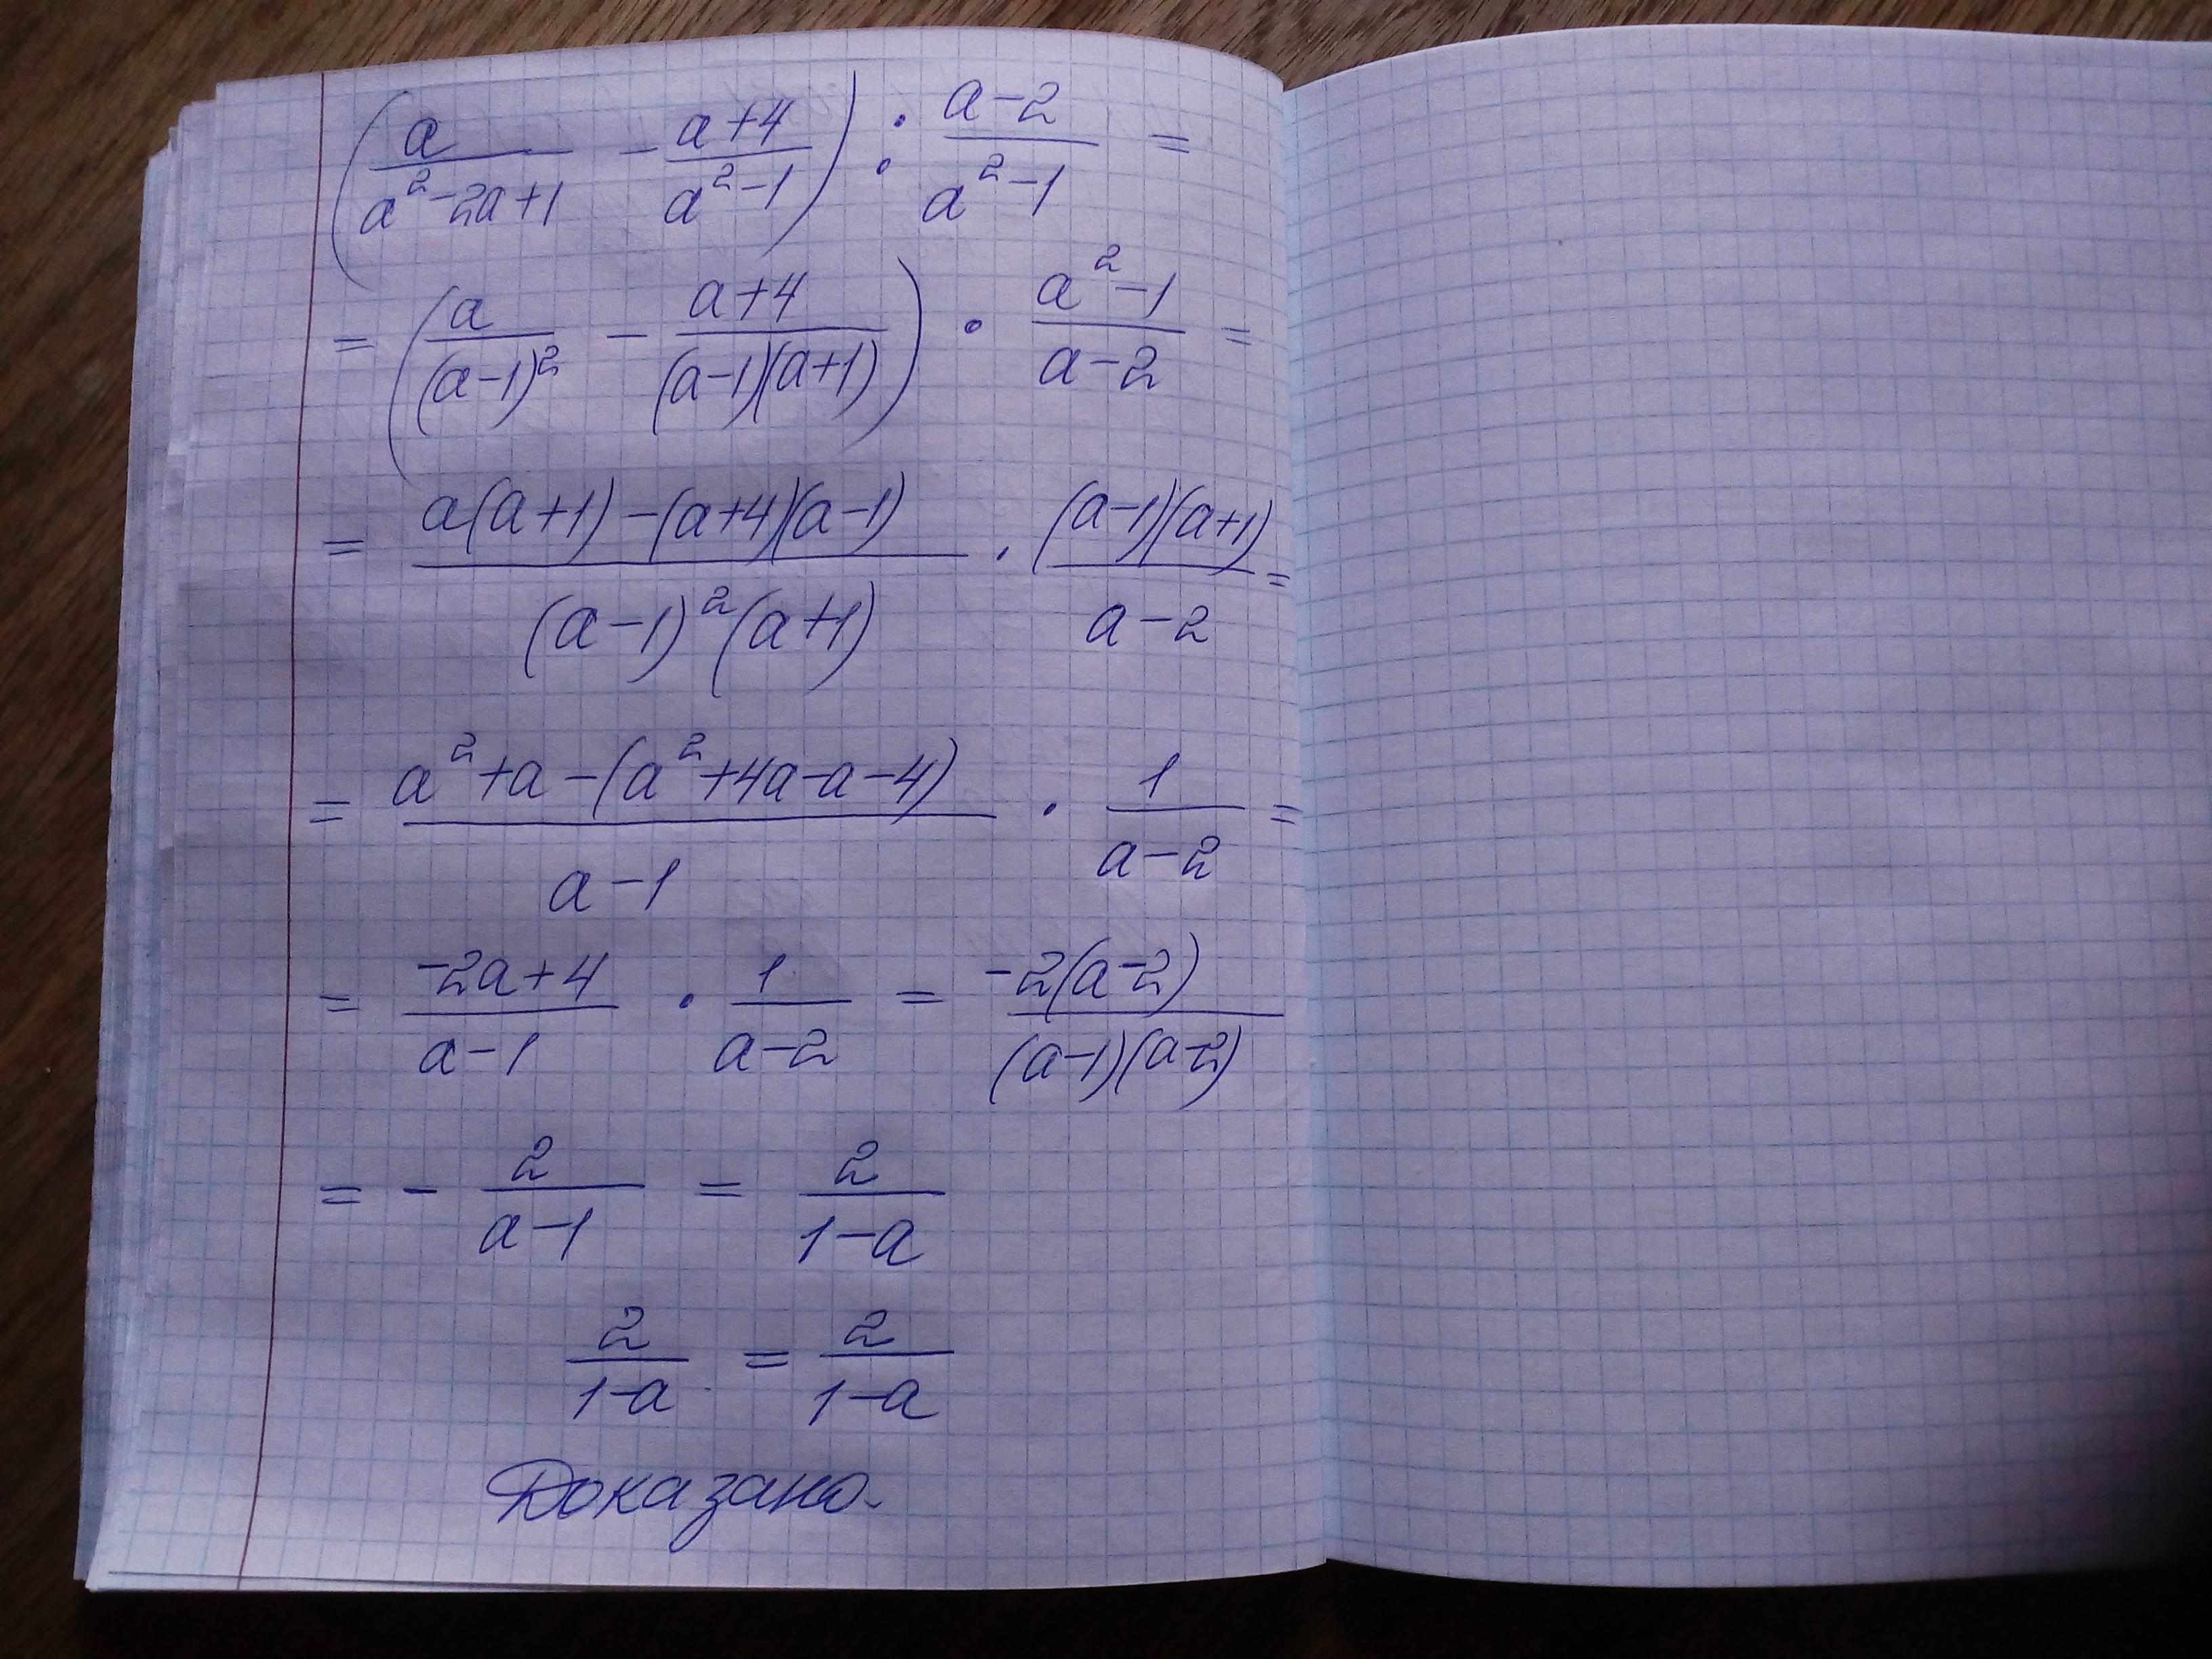 (a/(a²-2a+1) - (a+4)/(a²-1)) : (a-2)/(a²-1) =
= (a/(a-1)² - (a+4)/((a-1)(a+1))) · (a²-1)/(a-2) =
= (a(a+1)-(a+4)(a-1))/((a-1)²(a+1)) · ((a-1)(a+1))/(a-2) =
= (a²+a-(a²+4a-a-4))/(a-1) · 1/(a-2) =
= (-2a+4)/(a-1) · 1/(a-2) = (-2(a-2))/((a-1)(a-2))
= - 2/(a-1) = 2/(1-a)
2/(1-a) = 2/(1-a)
Доказано.